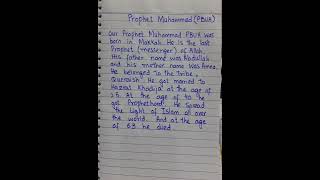 Prophet Muhammad (PBUH)
Our Prophet Muhammad PBUH was
born in Makkah. He is the last
Prophet (messenger) of Allah.
His father name was Abdullah
and his mother name was Amna.
He belonged To the Tribe,
Quraish. He got married to
Hazrat Khadija at the age of
25. At the age of 40 he
got Prophethood. He spread
the light of Islam all over
the world. And at the age
of 63 he died.